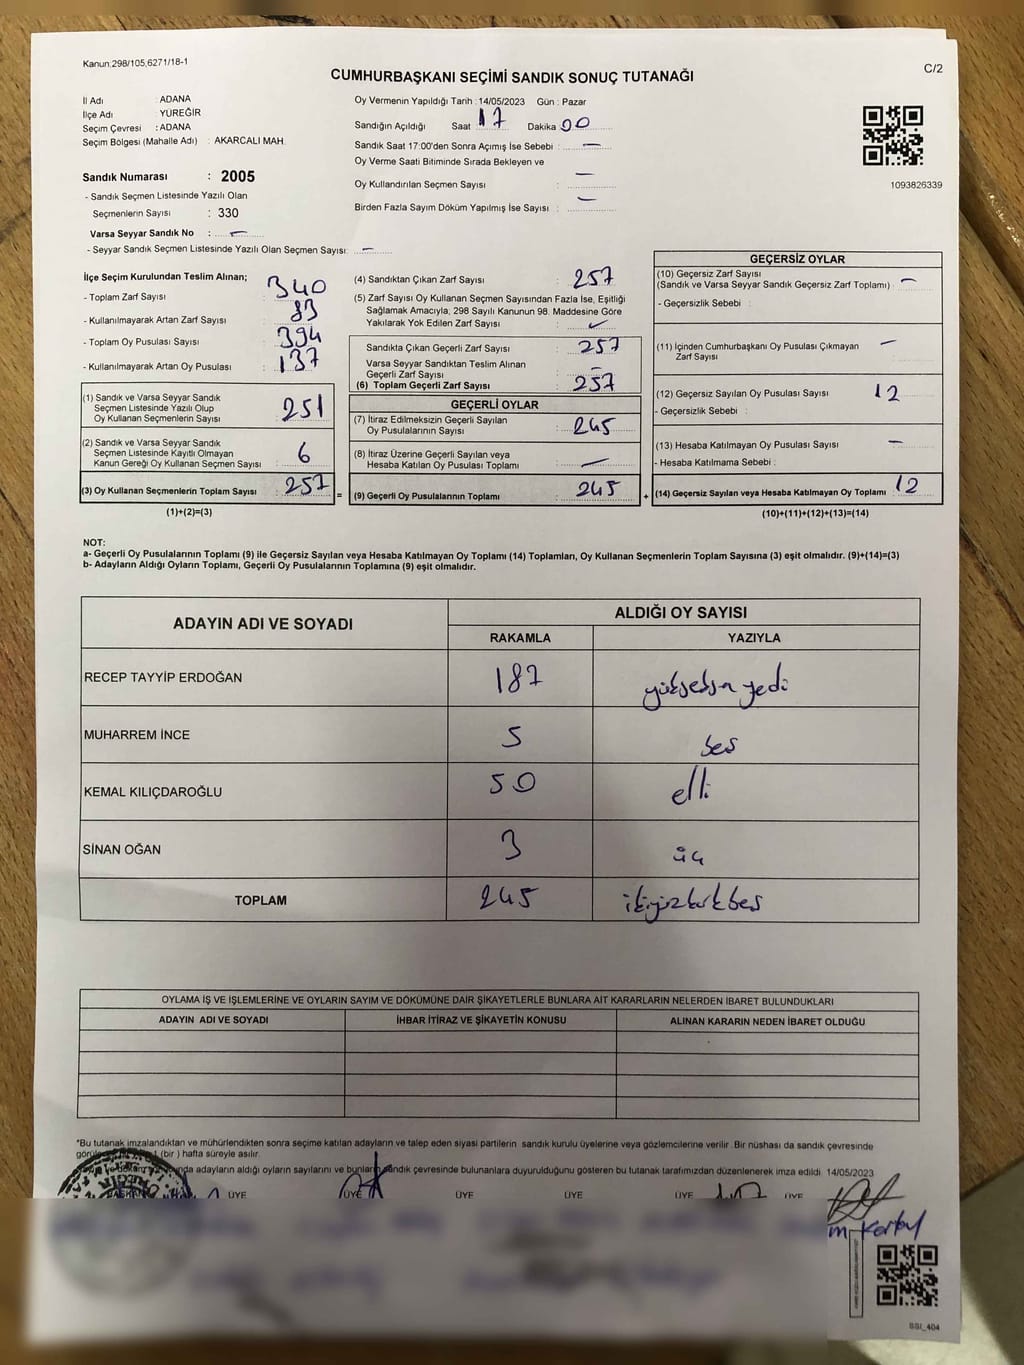 Kanun:298/105,6271/18-1
CUMHURBAŞKANI SEÇİMİ SANDIK SONUÇ TUTANAĞI
C/2
İl Adı : ADANA
İlçe Adı : YÜREĞİR
Seçim Çevresi : ADANA
Seçim Bölgesi (Mahalle Adı) : AKARCALI MAH.
Oy Vermenin Yapıldığı Tarih : 14/05/2023 Gün : Pazar
Sandığın Açıldığı Saat 17 Dakika 00
Sandık Saat 17:00'den Sonra Açımış İse Sebebi : —
Oy Verme Saati Bitiminde Sırada Bekleyen ve
Oy Kullandırılan Seçmen Sayısı : —
Birden Fazla Sayım Döküm Yapılmış İse Sayısı : —
1093826339
Sandık Numarası : 2005
- Sandık Seçmen Listesinde Yazılı Olan
Seçmenlerin Sayısı : 330
Varsa Seyyar Sandık No : —
- Seyyar Sandık Seçmen Listesinde Yazılı Olan Seçmen Sayısı: —
İlçe Seçim Kurulundan Teslim Alınan;
- Toplam Zarf Sayısı : 340
- Kullanılmayarak Artan Zarf Sayısı : 83
- Toplam Oy Pusulası Sayısı : 394
- Kullanılmayarak Artan Oy Pusulası : 137
(1) Sandık ve Varsa Seyyar Sandık
Seçmen Listesinde Yazılı Olup
Oy Kullanan Seçmenlerin Sayısı : 251
(2) Sandık ve Varsa Seyyar Sandık
Seçmen Listesinde Kayıtlı Olmayan
Kanun Gereği Oy Kullanan Seçmen Sayısı : 6
(3) Oy Kullanan Seçmenlerin Toplam Sayısı : 257 =
(1)+(2)=(3)
(4) Sandıktan Çıkan Zarf Sayısı : 257
(5) Zarf Sayısı Oy Kullanan Seçmen Sayısından Fazla İse, Eşitliği
Sağlamak Amacıyla, 298 Sayılı Kanunun 98. Maddesine Göre
Yakılarak Yok Edilen Zarf Sayısı :
Sandıkta Çıkan Geçerli Zarf Sayısı : 257
Varsa Seyyar Sandıktan Teslim Alınan
Geçerli Zarf Sayısı : —
(6) Toplam Geçerli Zarf Sayısı : 257
GEÇERLİ OYLAR
(7) İtiraz Edilmeksizin Geçerli Sayılan
Oy Pusulalarının Sayısı : 245
(8) İtiraz Üzerine Geçerli Sayılan veya
Hesaba Katılan Oy Pusulası Toplamı : —
(9) Geçerli Oy Pusulalarının Toplamı : 245 +
GEÇERSİZ OYLAR
(10) Geçersiz Zarf Sayısı
(Sandık ve Varsa Seyyar Sandık Geçersiz Zarf Toplamı) : —
- Geçersizlik Sebebi :
(11) İçinden Cumhurbaşkanı Oy Pusulası Çıkmayan
Zarf Sayısı —
(12) Geçersiz Sayılan Oy Pusulası Sayısı : 12
- Geçersizlik Sebebi :
(13) Hesaba Katılmayan Oy Pusulası Sayısı : —
- Hesaba Katılmama Sebebi :
(14) Geçersiz Sayılan veya Hesaba Katılmayan Oy Toplamı : 12
(10)+(11)+(12)+(13)=(14)
NOT:
a- Geçerli Oy Pusulalarının Toplamı (9) ile Geçersiz Sayılan veya Hesaba Katılmayan Oy Toplamı (14) Toplamları, Oy Kullanan Seçmenlerin Toplam Sayısına (3) eşit olmalıdır. (9)+(14)=(3)
b- Adayların Aldığı Oyların Toplamı, Geçerli Oy Pusulalarının Toplamına (9) eşit olmalıdır.
ADAYIN ADI VE SOYADI ALDIĞI OY SAYISI
RAKAMLA YAZIYLA
RECEP TAYYİP ERDOĞAN 187 yükseksn yedi
MUHARREM İNCE 5 beş
KEMAL KILIÇDAROĞLU 50 elli
SİNAN OĞAN 3 üç
TOPLAM 245 ikiyüzkırkbeş
OYLAMA İŞ VE İŞLEMLERİNE VE OYLARIN SAYIM VE DÖKÜMÜNE DAİR ŞİKAYETLERLE BUNLARA AİT KARARLARIN NELERDEN İBARET BULUNDUKLARI
ADAYIN ADI VE SOYADI İHBAR İTİRAZ VE ŞİKAYETİN KONUSU ALINAN KARARIN NEDEN İBARET OLDUĞU
*Bu tutanak imzalandıktan ve mühürlendikten sonra seçime katılan adayların ve talep eden siyasi partilerin sandık kurulu üyelerine veya gözlemcilerine verilir. Bir nüshası da sandık çevresinde
(bir) hafta süreyle asılır.
adayların aldığı oyların sayılarını ve bunların sandık çevresinde bulunanlara duyurulduğunu gösteren bu tutanak tarafımızdan düzenlenerek imza edildi. 14/05/2023
BAŞKAN ÜYE ÜYE ÜYE ÜYE ÜYE ÜYE
SSI_404